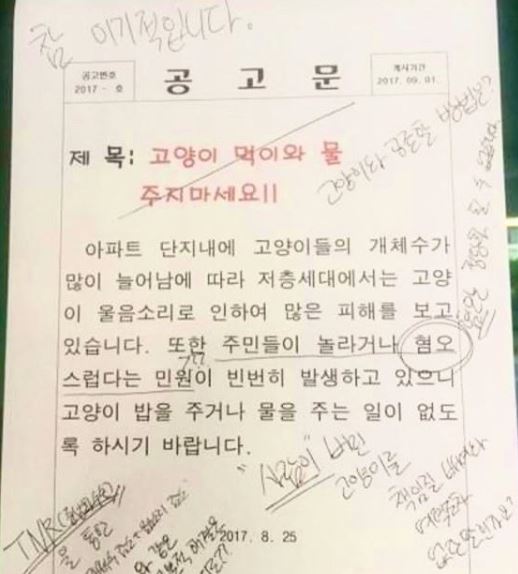 참 이기적입니다.
공고번호
2017 - 호
공 고 문
게시기간
2017. 09. 01.
제 목: 고양이 먹이와 물
주지마세요!!
고양이와 공존할 방법은?
아파트 단지내에 고양이들의 개체수가
많이 늘어남에 따라 저층세대에서는 고양
이 울음소리로 인하여 많은 피해를 보고
있습니다. 또한 주민들이 놀라거나 혐오
스럽다는 민원이 빈번히 발생하고 있으니
고양이 밥을 주거나 물을 주는 일이 없도
록 하시기 바랍니다.
"사람이" 버린
고양이를
책임질
2017. 8. 25
TNR
을 통한